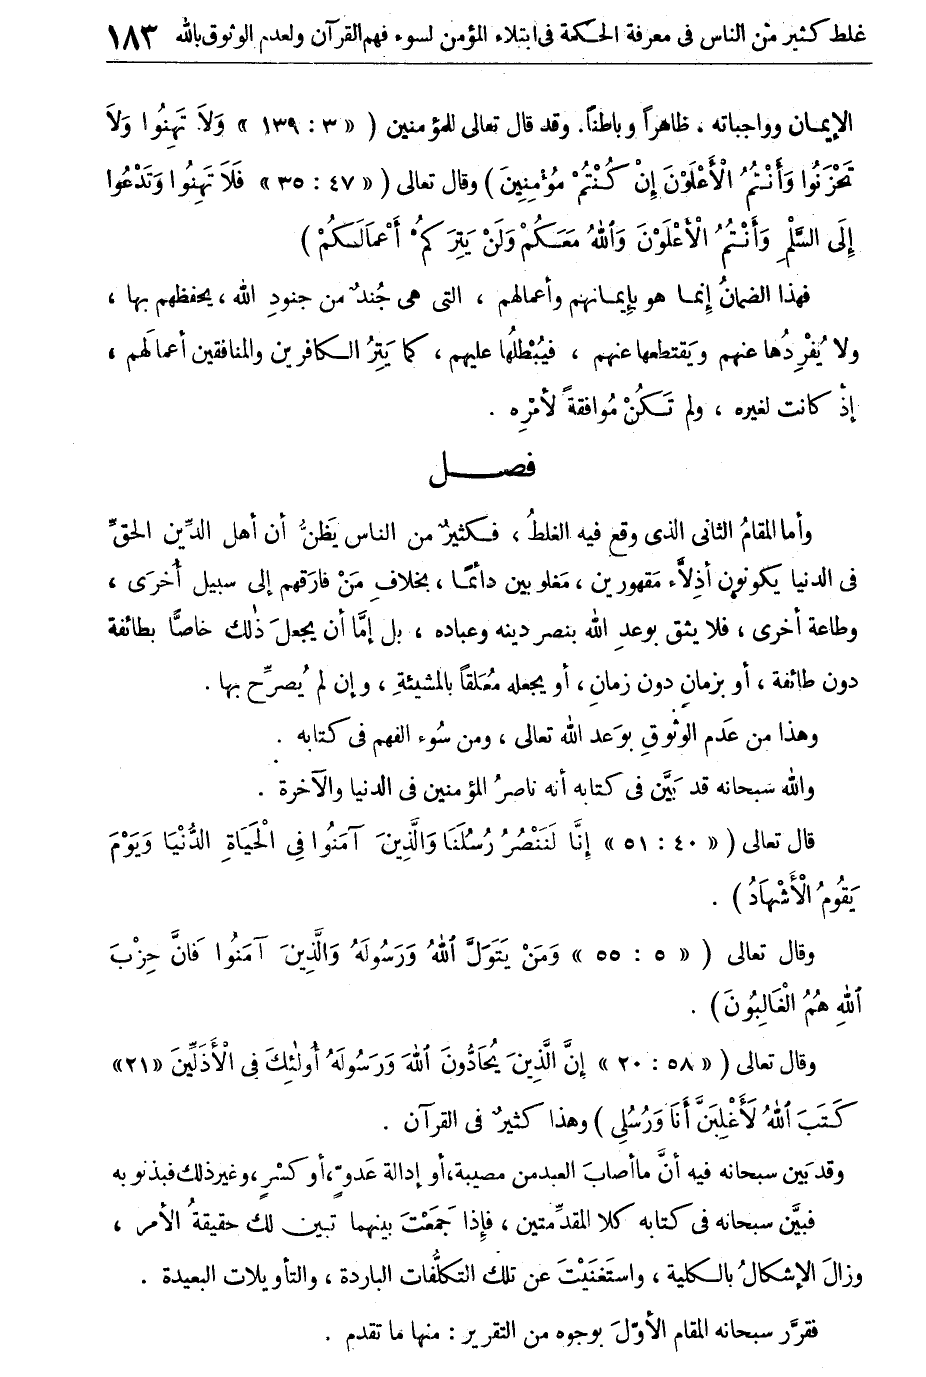 غلط كثير من الناس فى معرفة الحكمة فى ابتلاء المؤمن لسوء فهم القرآن ولعدم الوثوق بالله ١٨٣
الإيمان وواجباته ، ظاهراً وباطناً. وقد قال تعالى للمؤمنين ( « ٣ : ١٣٩ » وَلاَ تَهِنُوا وَلاَ
تَحْزَنُوا وَأَنْتُمُ الْأَعْلَوْنَ إِنْ كُنْتُمْ مُؤْمِنِينَ ) وقال تعالى ( « ٤٧ : ٣٥ » فَلَا تَهِنُوا وَتَدْعُوا
إِلَى السَّلْمِ وَأَنْتُمُ الْأَعْلَوْنَ وَاللهُ مَعَكُمْ وَلَنْ يَتِرَكُمْ أَعْمَالَكُمْ )
فهذا الضمانُ إِنما هو بإِيمانهم وأعمالهم ، التى هى جُندٌ من جنودِ الله ، يحفظهم بها ،
ولا يُفْرِدُها عنهم ويَقتطعها عنهم ، فيُبْطلُها عليهم ، كما يَتِرُ الكافرين والمنافقين أعمالَهم ،
إذْ كانت لغيره ، ولم تَكُنْ مُوافقةً لأمْرِه .
فصل
وأما المقامُ الثانى الذى وقع فيه الغلطُ ، فكثيرٌ من الناس يَظنُّ أن أهل الدِّين الحقِّ
فى الدنيا يكونون أذِلاَّء مَقهورين ، مَغلوبين دائمًا ، بخلافِ مَنْ فارَقهم إلى سبيل أُخرَى ،
وطاعة أخرى ، فلا يثق بوعدِ الله بنصر دينه وعباده ، بل إمَّا أن يجعلَ ذٰلك خاصًّا بطائفة
دون طائفة ، أو بزمانٍ دون زمانٍ ، أو يجعله مُعَلقاً بالمشيئةِ ، وإن لم يُصرِّح بها .
وهذا من عَدم الوثوقِ بوَعد الله تعالى ، ومن سُوء الفهم فى كتابه .
والله سَبحانه قد بَيَّن فى كتابه أنه ناصرُ المؤمنين فى الدنيا والآخرة .
قال تعالى ( « ٤٠ : ٥١ » إِنَّا لَنَنْصُرُ رُسُلَنَا وَالَّذِينَ آمَنُوا فِي الْحَيَاةِ الدُّنْيَا وَيَوْمَ
يَقُومُ الْأَشْهَادُ ) .
وقال تعالى ( « ٥ : ٥٥ » وَمَنْ يَتَوَلَّ اللهُ وَرَسُولَهُ وَالَّذِينَ آمَنُوا فَانَّ حِزْبَ
اللهِ هُمُ الْغَالِبُونَ ) .
وقال تعالى ( « ٥٨ : ٢٠ » إِنَّ الَّذِينَ يُحَادُّونَ اللهَ وَرَسُولَهُ أُولٰئِكَ فِى الْأَذَلِّينَ «٢١»
كَتَبَ اللهُ لَأَغْلِبَنَّ أَنَا وَرُسُلِي ) وهذا كثيرٌ فى القرآن .
وقد بَين سبحانه فيه أنَّ ما أصابَ العبد من مصيبة، أو إدالة عَدوٍّ، أو كَسْرٍ ، وغير ذلك فبذنوبه
فبيَّن سبحانه فى كتابه كلا المقدِّمتين ، فإِذا جَمَعْتَ بينهما تبين لك حقيقةُ الأمر ،
وزالَ الإشكالُ بالكلية ، واستَغنَيْتَ عن تلك التكلُّفات الباردة ، والتأويلات البعيدة .
فقرَّر سبحانه المقام الأوّلَ بوجوه من التقرير : منها ما تقدم .